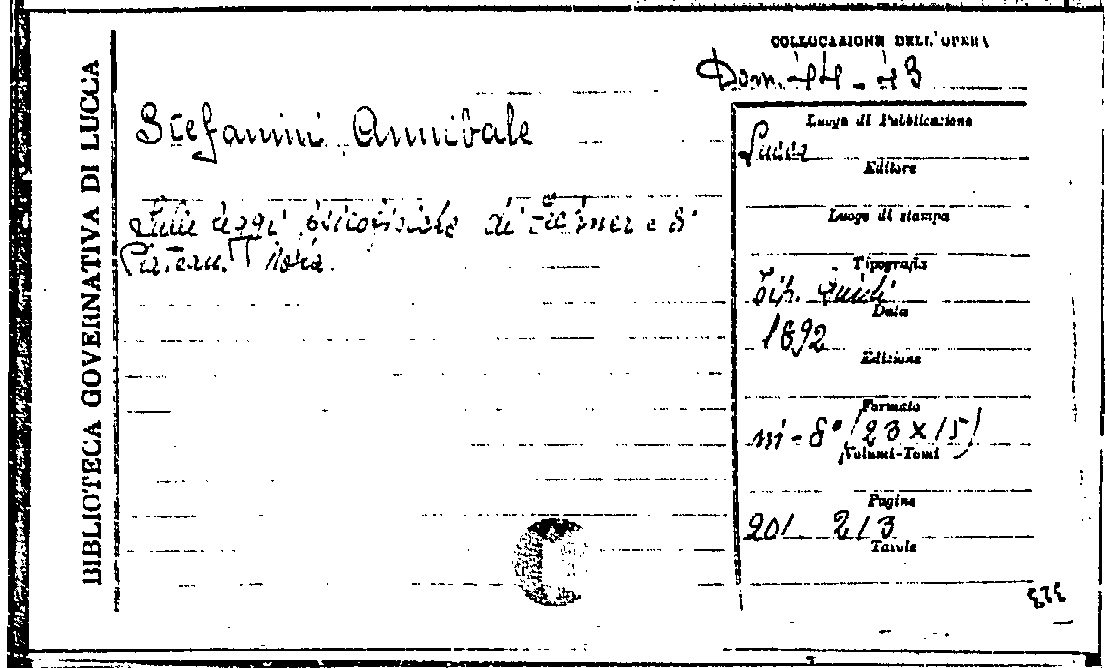 BIBLIOTECA GOVERNATIVA DI LUCCA
COLLOCAZIONE DELL'OPERA
Dom. 44-43
Stefanini Annibale
Sulle leggi psicofisiche di Fechner e di
Plateau. Nota.
Luogo di Pubblicazione
Lucca
Editore
Luogo di stampa
Tipografia
Tip. Giusti
Data
1892
Edizione
Formato
in-8° (23 x 15)
Volumi-Tomi
Pagine
201 213
Tavole